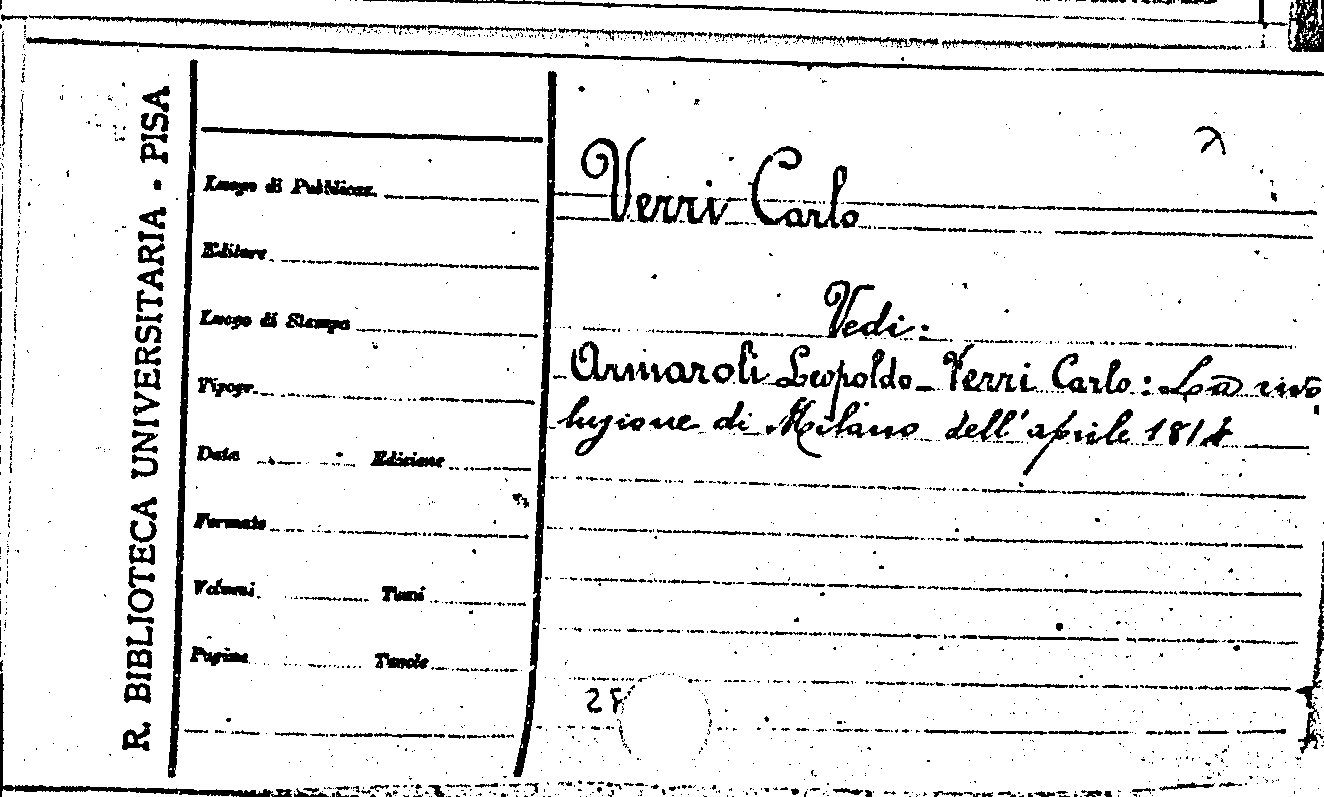 R. BIBLIOTECA UNIVERSITARIA - PISA
Luogo di Pubblicaz.
Editore
Luogo di Stampa
Tipogr.
Data Edizione
Formato
Volumi Tomi
Pagine Tavole
Verri Carlo
Vedi:
Armaroli Leopoldo - Verri Carlo: La rivo
luzione di Milano dell'aprile 1814